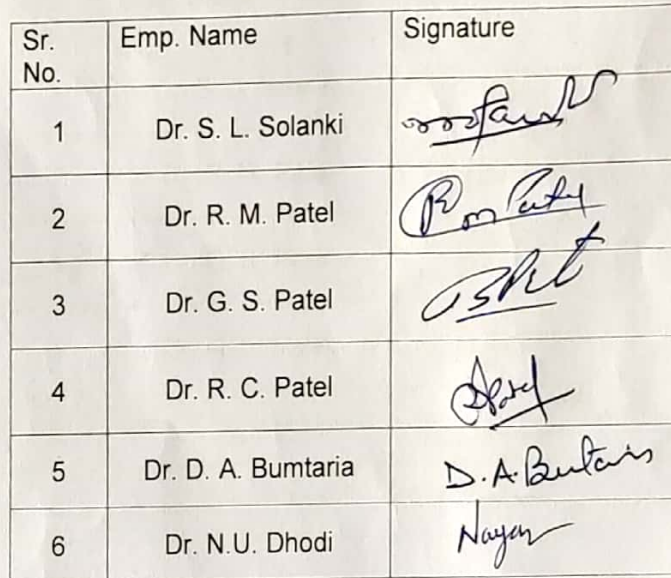 Sr. No. Emp. Name Signature
1 Dr. S. L. Solanki
2 Dr. R. M. Patel R m Patel
3 Dr. G. S. Patel
4 Dr. R. C. Patel
5 Dr. D. A. Bumtaria D. A.
6 Dr. N.U. Dhodi Nayan